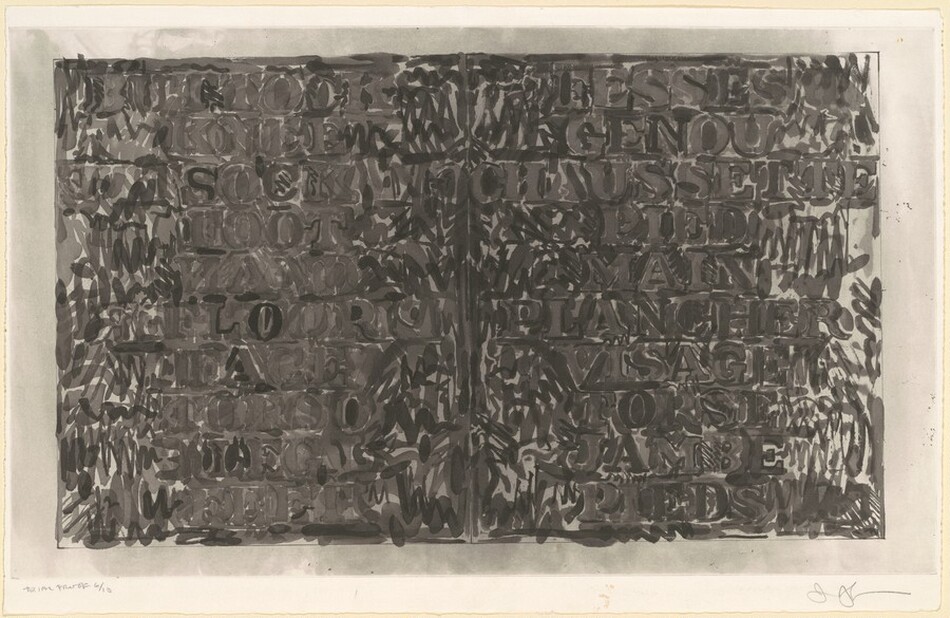 FESSES
KNEE GENOU
SOCK CHAUSSETTE
FOOT PIED
HAND MAIN
FLOOR PLANCHER
FACE VISAGE
TORSO TORSE
LEG JAMBE
FEET PIEDS
TRIAL PROOF 6/10